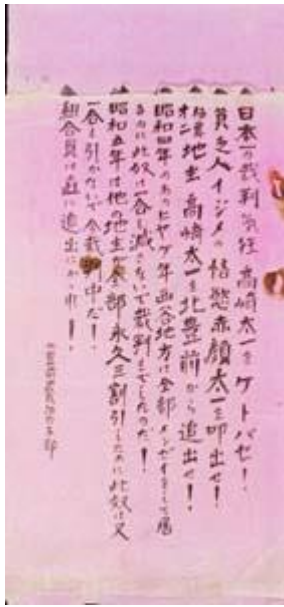 日本一の裁判気狂高崎太一をケトバセ！
貧乏人イジメの慾赤顔太一を叩出せ！
地主高崎太一を北豊前から追出せ！
昭和四年のあのヒヤケ年西谷地方は全部メンゼイをして居
るのに此奴は一合も減さないで裁判までしたのだ！
昭和五年は他の地主が全部永久三割引したのに此奴は又
一合も引かないで今裁判中だ！
組合員は直に追出にかゝれ！